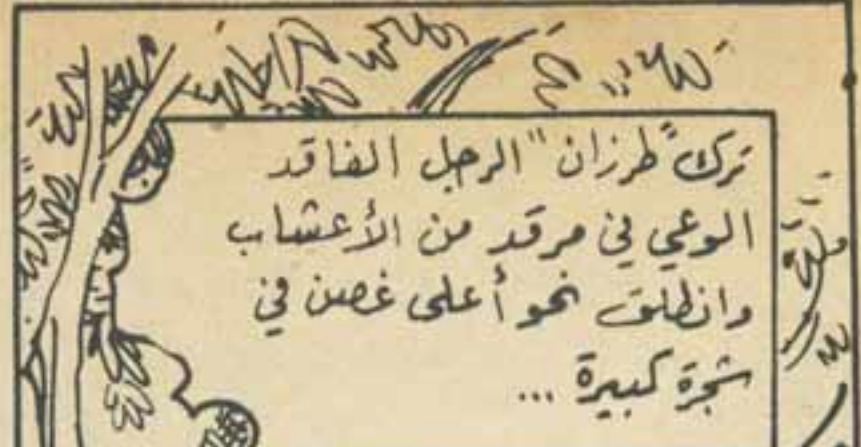 ترك "طرزان" الرجل الفاقد
الوعي في مرقد من الأعشاب
وانطلق نحو أعلى غصن في
شجرة كبيرة ...